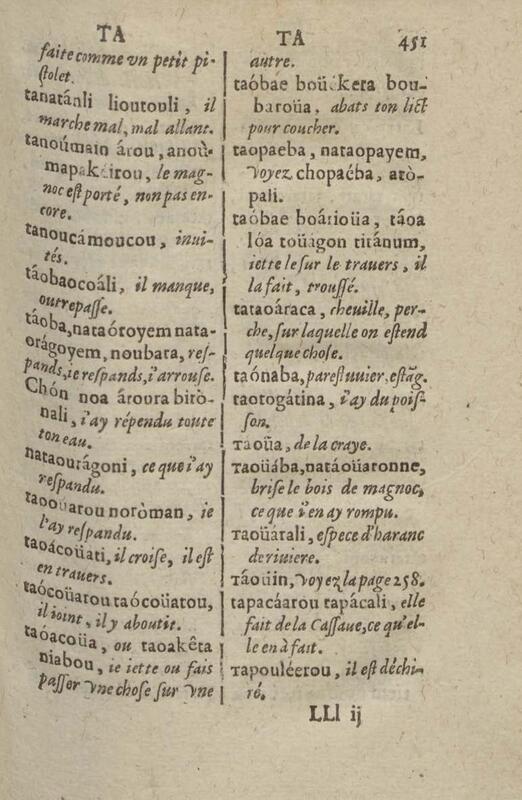 TA
faite comme vn petit pi-
stolet.
tanatánli lioutouli, il
marche mal, mal allant.
tanoúmain árou, anoù-
mapakéirou, le mag-
noc est porté, non pas en-
core.
tanoucámoucou, inui-
tés.
táobaocoáli, il manque,
outrepasse.
táoba, nataóroyem nata-
orágoyem, noubara, res-
pands, ie respands, i'arrouse.
Chón noa ároura birò-
nali, i'ay répendu toute
ton eau.
nataourágoni, ce que i'ay
respandu.
taoouarou noròman, ie
l'ay respandu.
taoácoüati, il croise, il est
en trauers.
taócoüarou taócoüatou,
il ioint, il y aboutit.
taóacoüa, ou taoakêta
niabou, ie iette ou fais
passer vne chose sur vne
TA 451
autre.
taóbae boüikera bou-
baroüa, abats ton lict
pour coucher.
taopaeba, nataopayem,
Voyez chopaéba, arò-
pali.
taóbae boárioüa, táoa
lóa toüagon titánum,
iette le sur le trauers, il
la fait, troussé.
tataoáraca, cheuille, per-
che, sur laquelle on estend
quelque chose.
taónaba, parestuuier, estãg.
taotogátina, i'ay du pois-
son.
Taoüa, de la craye.
Taoüába, natáoüaronne,
brise le bois de magnoc,
ce que i'en ay rompu.
Taoüárali, espece d'haranc
de riuiere.
Táoüin, Voyez la page 258.
tapacáarou tapácali, elle
fait de la Cassaue, ce qu'el-
le en à fait.
Tapouléerou, il est déchi-
ré.
LLl ij